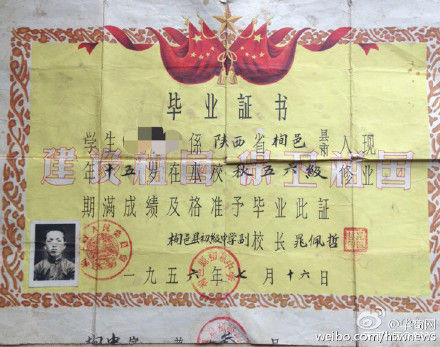 毕业証书
学生 係陕西省栒邑县人现
年十五岁在本校秋五六級修业
期满成绩及格准予毕业此証
建設祖国保卫祖国
栒邑县初級中学副校长 晁佩哲
一九五六年七月十六日
@华商网
weibo.com/hswnews